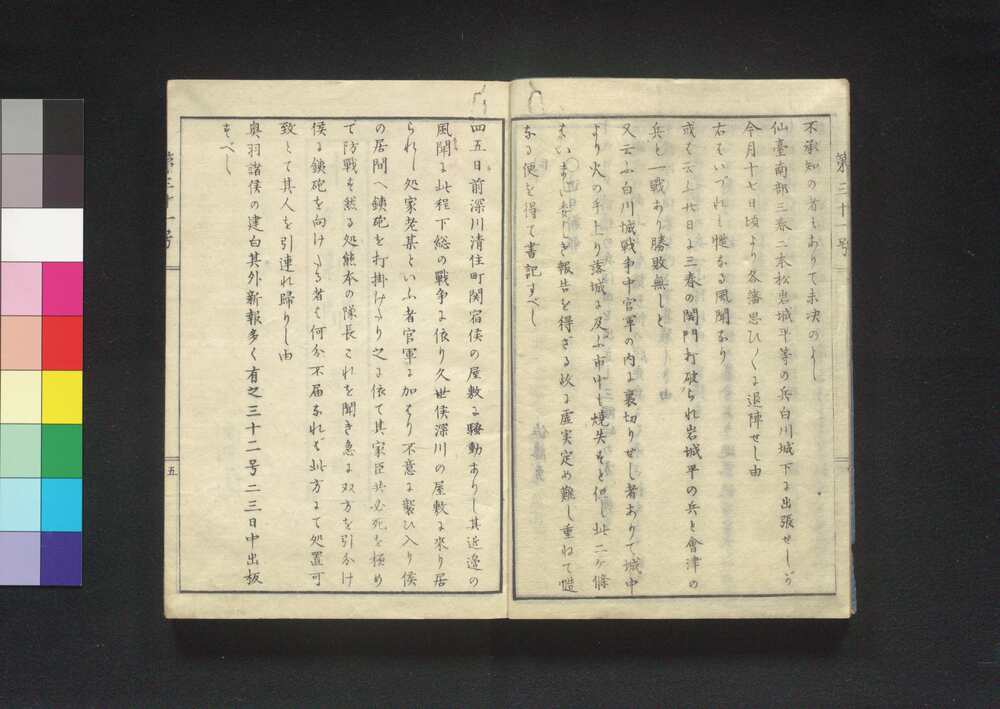 第三十一号
不承知の者もありて未决のよし
仙臺南部三春二本松岩城平等の兵白川城下に出張せしが
今月十七日頃より各藩思ひ〳〵に退陣せし由
右はいづれも慥なる風聞なり
或は云上廿日に三春の関門打破られ岩城平の兵と會津の
兵と一戦あり勝敗無しと
又云ふ白川城戦争中官軍の内に裏切りせし者ありて城中
より火の手上り落城に及ぶ市中も焼失すと但し此二ヶ條
はいまだ委しき報告を得ざる故に虚実定め難し重ねて慥
なる便を得て書記すべし
四五日前深川清住町関宿侯の屋敷に騒動ありし其近邊の
風聞に此程下総の戦争に依り久世侯深川の屋敷に来り居
られし処家老某といふ者官軍に加はり不意に襲ひ入り侯
の居間へ鉄砲を打掛けたり之に依て其家臣共必死を極め
て防戦す然る処熊本の隊長これを聞き急に双方を引分け
侯に鉄砲を向けたる者は何分不届なれば此方にて処置可
致とて其人を引連れ歸りし由
奥羽諸侯の建白其外新報多く有之三十二号二三日中出板
すべし
第三十一号
五